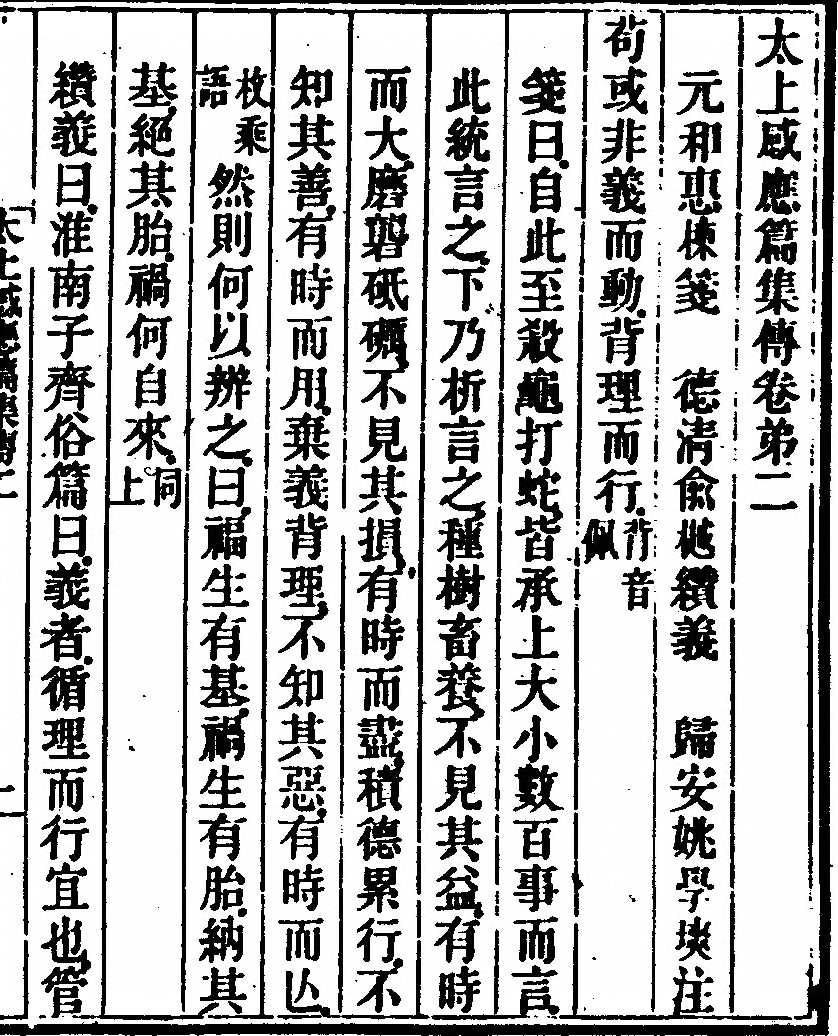 太上感應篇集傳卷弟二
元和惠棟箋　德淸俞樾纘義　歸安姚學塽注
茍或非義而動背理而行背音佩
箋曰自此至殺龜打蛇皆承上大小數百事而言
此統言之下乃析言之種樹畜養不見其益有時
而大磨礱砥礪不見其損有時而盡積德累行不
知其善有時而用棄義背理不知其惡有時而亾
枚乘語然則何以辨之曰福生有基禍生有胎納其
基絕其胎禍何自來同上
纘義曰淮南子齊俗篇曰義者循理而行宜也管
太上感應篇集傳二
一